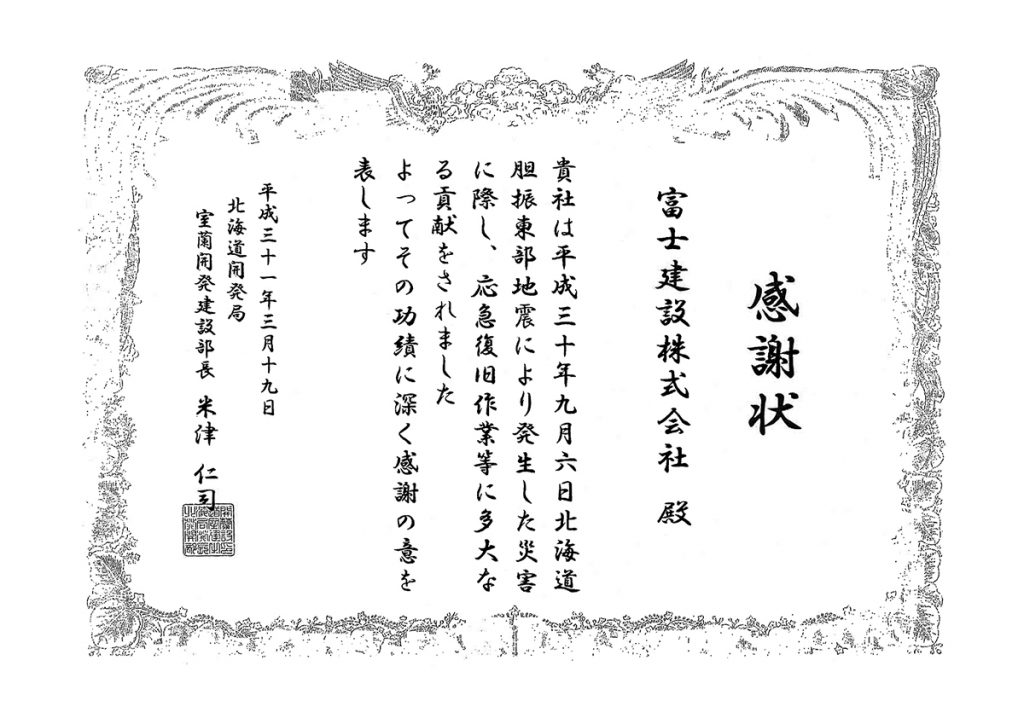 感謝状
富士建設株式会社 殿
貴社は平成三十年九月六日北海道
胆振東部地震により発生した災害
に際し、応急復旧作業等に多大な
る貢献をされました
よってその功績に深く感謝の意を
表します
平成三十一年三月十九日
北海道開発局
室蘭開発建設部長 米津 仁司